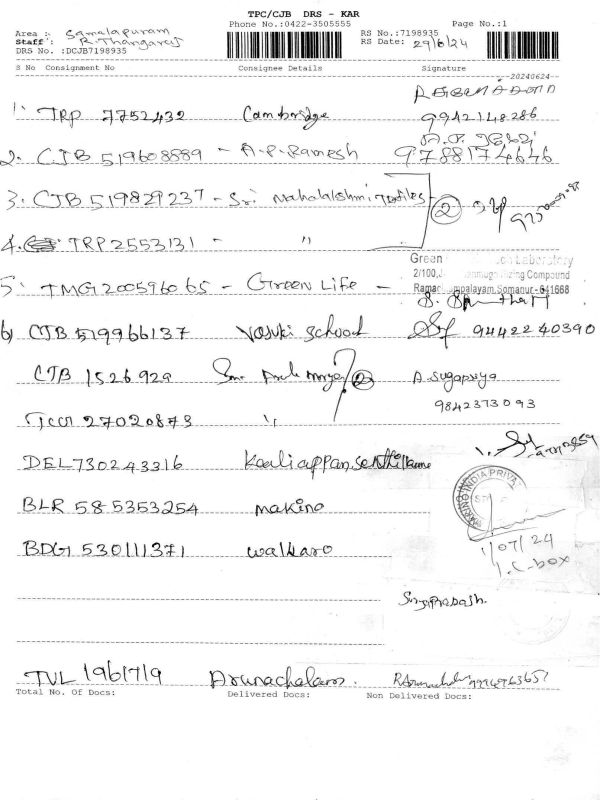 TPC/CJB DRS - KAR
Phone No.:0422-3505555
Page No.:1
Area : Samalapuram
Staff : R. Thangaraj
DRS No. :DCJB7198935
RS No.:7198935
RS Date: 29/6/24
S No Consignment No Consignee Details Signature
20240624
1. TRP 7752432 Cambridge 9942148286
2. CJB 519608889 - A.P. Ramesh 9788174646
3. CJB 519829237 - Sri Mahalakshmi Textiles 2
4. TRP 2553131 - "
Green Laboratory
2/100, Sizing Compound
Ramac palayam, Somanur - 641668
5. TMG200596065 - Green Life -
6) CJB 519966137 Vasuki School 9442240390
CJB 1526929 2 A. Sugapriya
9842373093
27020873 "
DEL730243316 Kaaliappan Senthilkumar
BLR 585353254 Makino
MAKINO INDIA PRIVA
BDG1 530111371 Walkaro
1/07/24
I.C-box
Suryaprakash
TVL 1961719 Arunachalam.
Total No. Of Docs: Delivered Docs: Non Delivered Docs: